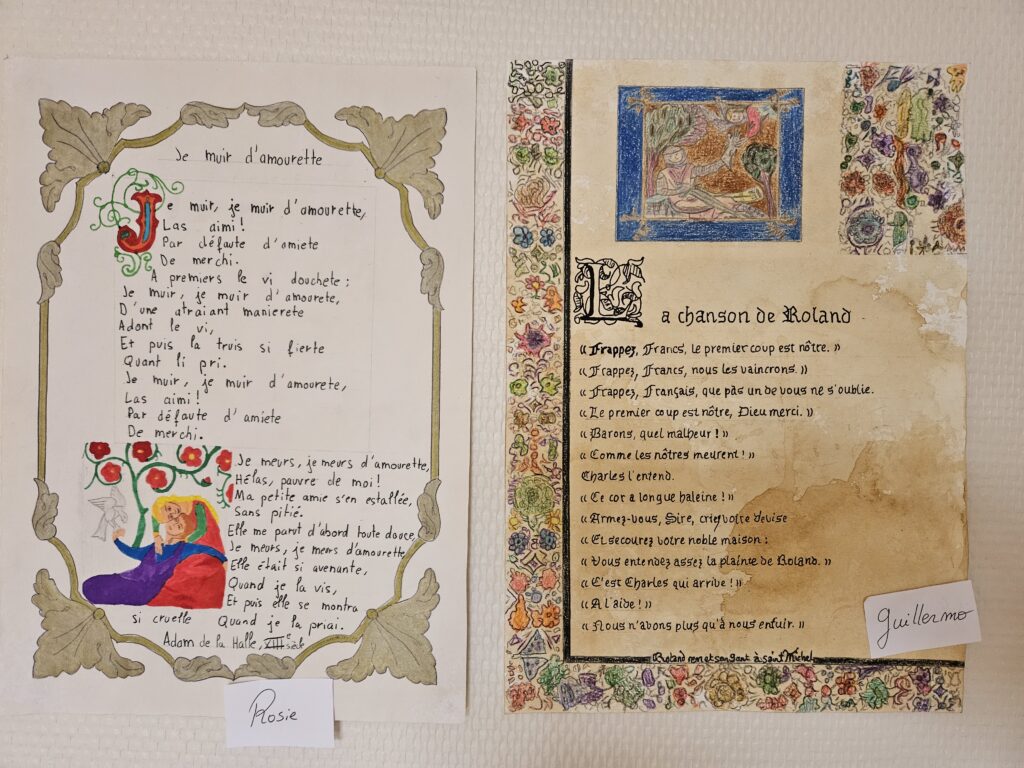 Je muir d'amourette
Je muir, je muir d'amourette,
Las aimi!
Par défaute d'amiete
De merchi.
A premiers le vi douchete;
Je muir, je muir d'amourete,
D'une atraiant manierete
Adont le vi,
Et puis la truis si fierte
Quant li pri.
Je muir, je muir d'amourete,
Las aimi!
Par défaute d'amiete
De merchi.
Je meurs, je meurs d'amourette,
Hélas, pauvre de moi!
Ma petite amie s'en est allée,
Sans pitié.
Elle me parut d'abord toute douce,
Je meurs, je meurs d'amourette
Elle était si avenante,
Quand je la vis,
Et puis elle se montra
si cruelle Quand je la priai.
Adam de la Halle, XIIIe siècle
Rosie
La chanson de Roland
« Frappez, Francs, le premier coup est nôtre. »
« Frappez, Francs, nous les vaincrons. »
« Frappez, Français, que pas un de vous ne s'oublie.
« Le premier coup est nôtre, Dieu merci. »
« Barons, quel malheur ! »
« Comme les nôtres meurent ! »
Charles l'entend.
« Ce cor a longue haleine ! »
« Armez-vous, Sire, criez votre devise
« Et secourez votre noble maison :
« Vous entendez assez la plainte de Roland. »
« C'est Charles qui arrive ! »
« A l'aide ! »
« Nous n'avons plus qu'à nous enfuir. »
Roland rem et son gant à saint Michel
Guillermo